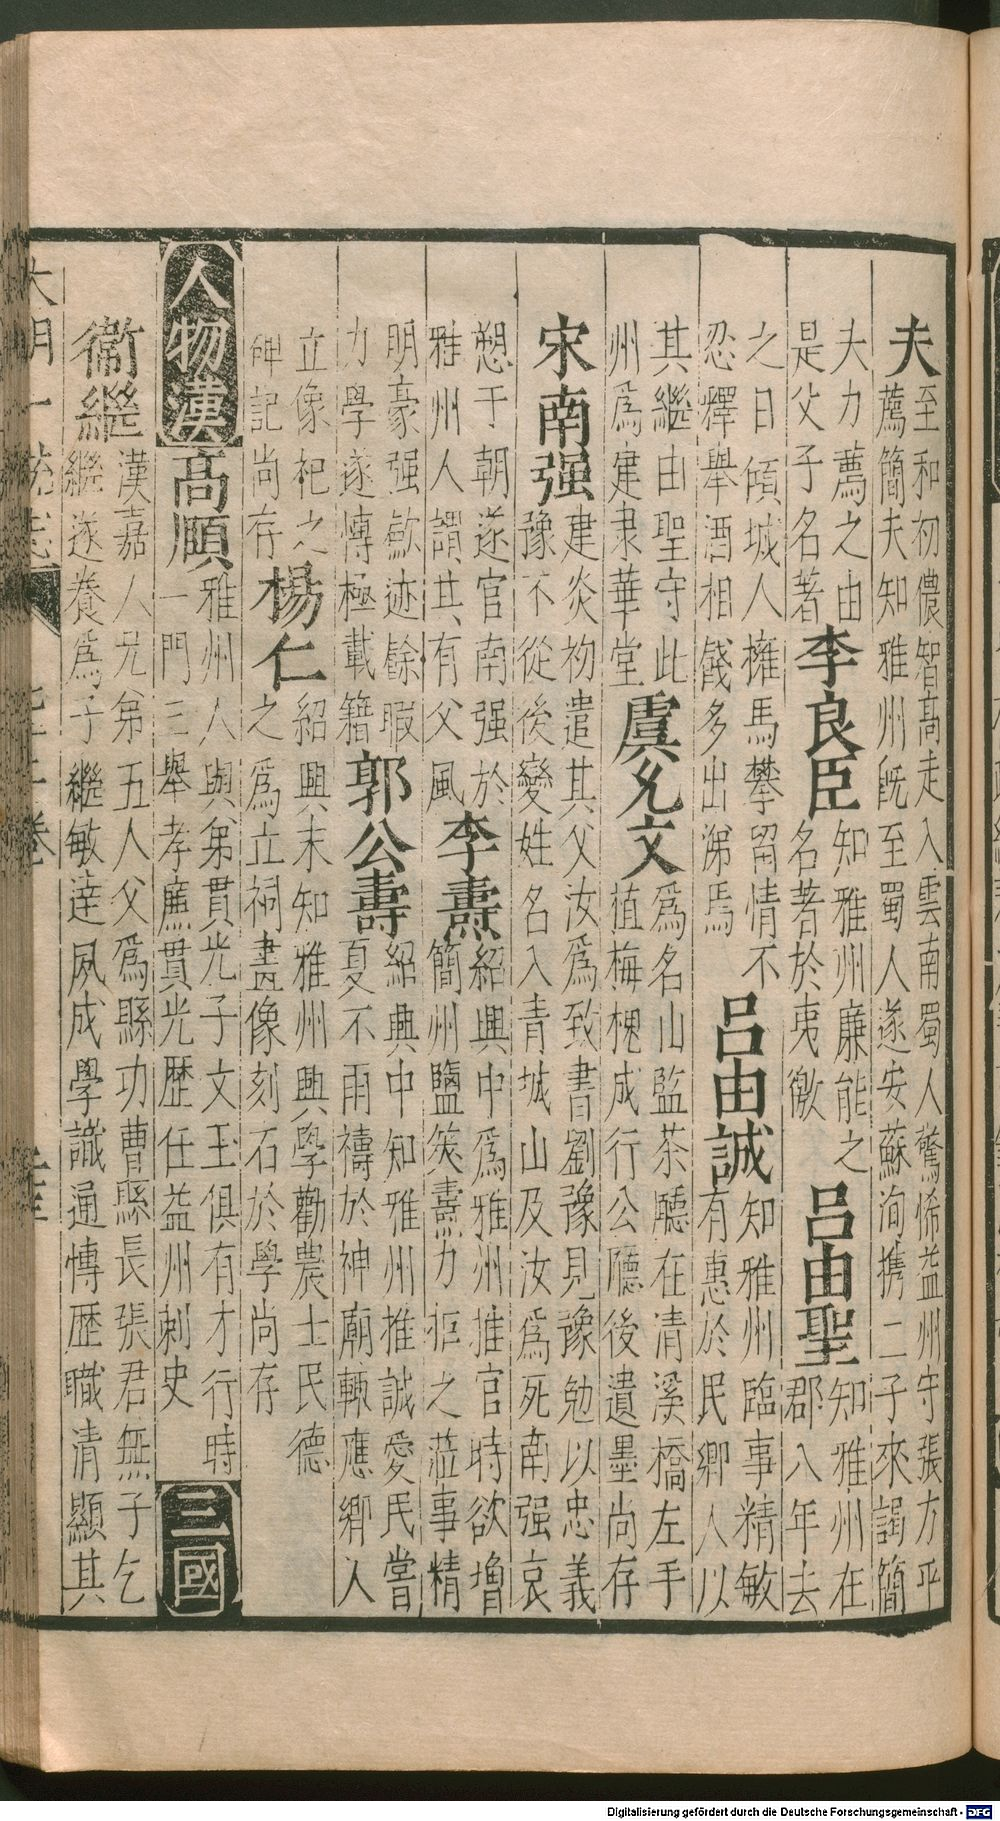 夫至和初儂智高走入雲南蜀人驚悕益州守張方平
薦簡夫知雅州既至蜀人遂安蘇洵携二子來謁簡
夫力薦之由是父子名著
李良臣知雅州廉能之名著於夷徼
呂由聖知雅州在郡八年去
之日傾城人擁馬攀留情不忍釋舉酒相餞多出涕焉
呂由誠知雅州臨事精敏有惠於民鄉人以
其繼由聖守此州爲建隶華堂
虞允文爲名山監茶廳在清溪橋左手植梅槐成行公廳後遺墨尚存
宋南强建炎初遣其父汝爲致書劉豫見豫勉以忠義
豫不從後變姓名入青城山及汝爲死南强哀
愬于朝遂官南强於雅州人謂其有父風
李燾紹興中爲雅州推官時欲增簡州鹽筴燾力拒之蒞事精
明豪强歛迹餘暇力學遂博極載籍
郭公壽紹興中知雅州推誠愛民嘗夏不雨禱於神廟輒應鄉人
立像祀之碑記尚存
楊仁紹興末知雅州興學勸農士民德之爲立祠畫像刻石於學尚存
人物漢
高順雅州人與弟貫光子文玉俱有才行時
一門三舉孝廉貫光歷任益州刺史
三國
衞繼漢嘉人兄弟五人父爲縣功曹縣長張君無子乞
繼遂養爲子繼敏達夙成學識通博歷職清顯其
大明一統志